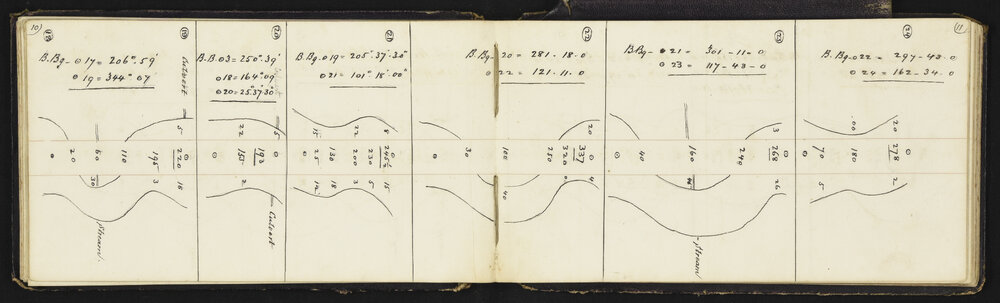 10)
18
19
B.Bg - ⊙ 17 = 206°. 59'
⊙ 19 = 344°. 07
Culvert
⊙ 20 60 110 195 220 ⊙
5
30
3 18
Stream
20
B.B. ⊙ 3 = 250°. 39'
⊙ 18 = 164°. 09'
⊙ 20 = 25°. 37'. 30"
22 5
⊙ 155 193 ⊙
2
Culvert
21
B.Bg. ⊙ 19 = 205°. 37'. 30"
⊙ 21 = 101°. 18'. 00"
15 22 8
⊙ 25 130 200 230 245½ ⊙
12 18 3 5 15
22
B.Bg ⊙ 20 = 281. 18. 0
⊙ 22 = 121. 11. 0
20
⊙ 30 100 250 320 337 ⊙
40 0 4
23
B.Bg - ⊙ 21 = 301 - 11 - 0
⊙ 23 = 117 - 43 - 0
3
⊙ 40 160 240 268 ⊙
26
Stream
11
24
B.Bg - ⊙ 22 = 297 - 43 - 0
⊙ 24 = 162 - 34 - 0
20
⊙ 70 180 278 ⊙
5 2